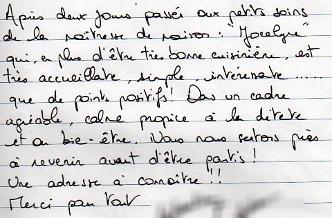 Après deux jours passé aux petits soins
de la maîtresse de maison : "Jocelyne"
qui, en plus d'être très bonne cuisinière, est
très accueillante, simple, intéressante .....
que de points positifs! Dans un cadre
agréable, calme propice à la détente
et au bien-être. Nous nous sentons prêts
à revenir avant d'être partis !
Une adresse à connaître !!!
Merci pour tout